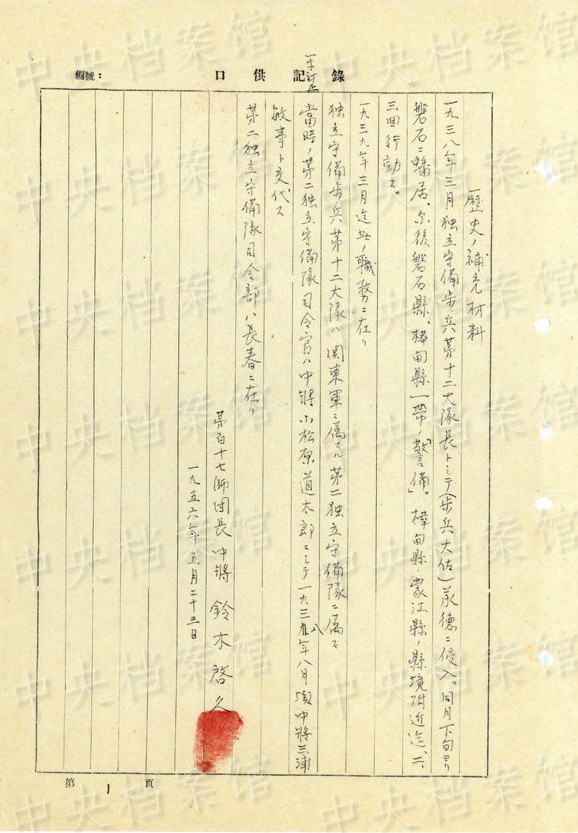 編號：
口供記錄
一歴史ノ補充材料
一九三八年三月独立守備歩兵第十二大隊長トシテ(歩兵大佐)承徳ニ侵入。同月下旬ヨリ
磐石ニ蟠居、尓後磐石縣、樺甸縣一帯ノ「警備」。樺甸縣、蒙江縣ノ縣境附近迄、二、
三回行動ス。
一九三九年三月迄此ノ職務ニ在リ
独立守備歩兵第十二大隊ハ関東軍ニ属スル第二独立守備隊ニ属ス
當時ノ第二独立守備隊司令官ハ中將小松原道太郎ニシテ一九三八年八月頃中將三浦
敏事ト交代ス
第二独立守備隊司令部ハ長春ニ在リ
第百十七師団長中將 鈴木啓久
一九五六年五月二十三日
第 1 頁
中央档案馆